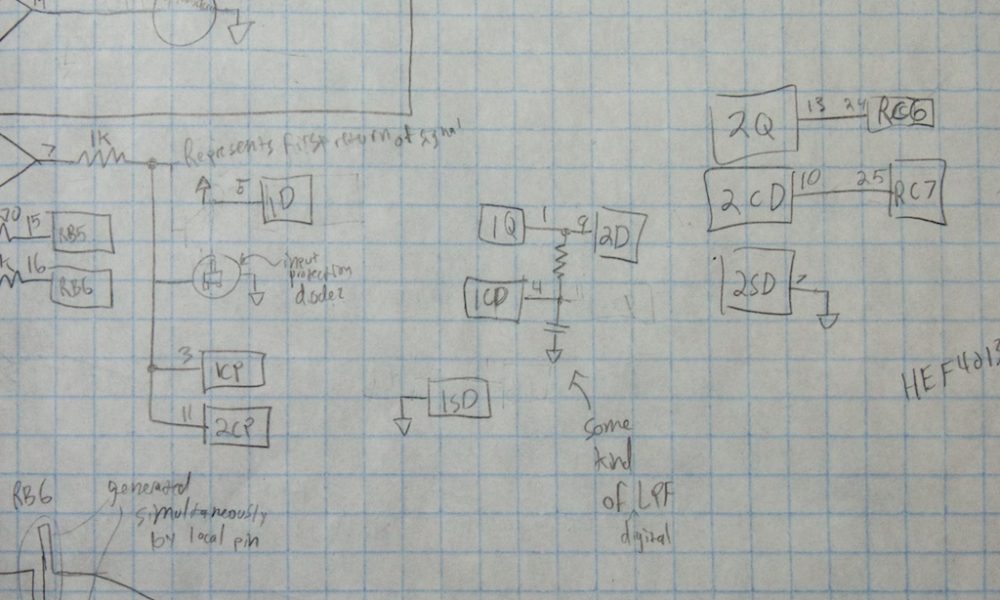 7
1K
Represents First return of signal
5
1D
20
15
RB5
K
16
RB6
input
protection
3
1CP
11
2CP
1Q
1
9
2D
1CD
4
1SD
Some
kind
of LPF
digital
2Q
13
24
RC6
2CD
10
25
RC7
2SD
HEF4013
RB6
generated
simultaneously
by local pin